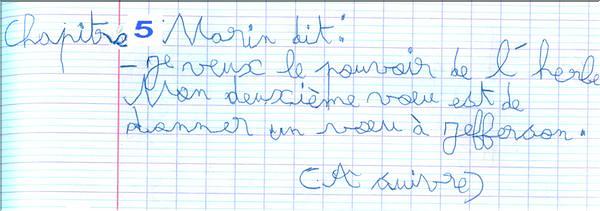 Chapitre 5 Marin dit :
- Je veux le pouvoir de l'herbe
Mon deuxième vœu est de
donner un vœu à Jefferson.
(A suivre)